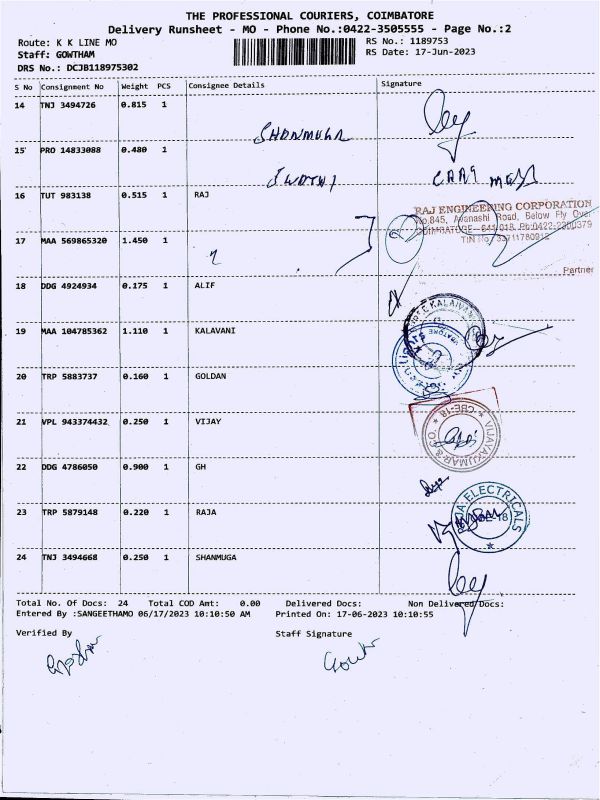 THE PROFESSIONAL COURIERS, COIMBATORE
Delivery Runsheet - MO - Phone No.:0422-3505555 - Page No.:2
Route: K K LINE MO
Staff: GOWTHAM
DRS No.: DCJB118975302
RS No.: 1189753
RS Date: 17-Jun-2023
S No Consignment No Weight PCS Consignee Details Signature
14 TNJ 3494726 0.815 1 SHANMUGA
15 PRO 14833088 0.480 1 SWATHI
16 TUT 983138 0.515 1 RAJ
RAJ ENGINEERING CORPORATION
No.845, Avanashi Road, Below Fly Over
COIMBATORE - 641 018. Ph:0422-2300379
TIN No
Partner
17 MAA 569865320 1.450 1
18 DDG 4924934 0.175 1 ALIF
19 MAA 104785362 1.110 1 KALAVANI
20 TRP 5883737 0.160 1 GOLDAN
21 VPL 943374432 0.250 1 VIJAY
VIJAYAKUMAR & CO
CBE-18
22 DDG 4786050 0.900 1 GH
23 TRP 5879148 0.220 1 RAJA
ELECTRICALS
24 TNJ 3494668 0.250 1 SHANMUGA
Total No. Of Docs: 24 Total COD Amt: 0.00 Delivered Docs: Non Delivered Docs:
Entered By :SANGEETHAMO 06/17/2023 10:10:50 AM Printed On: 17-06-2023 10:10:55
Verified By Staff Signature